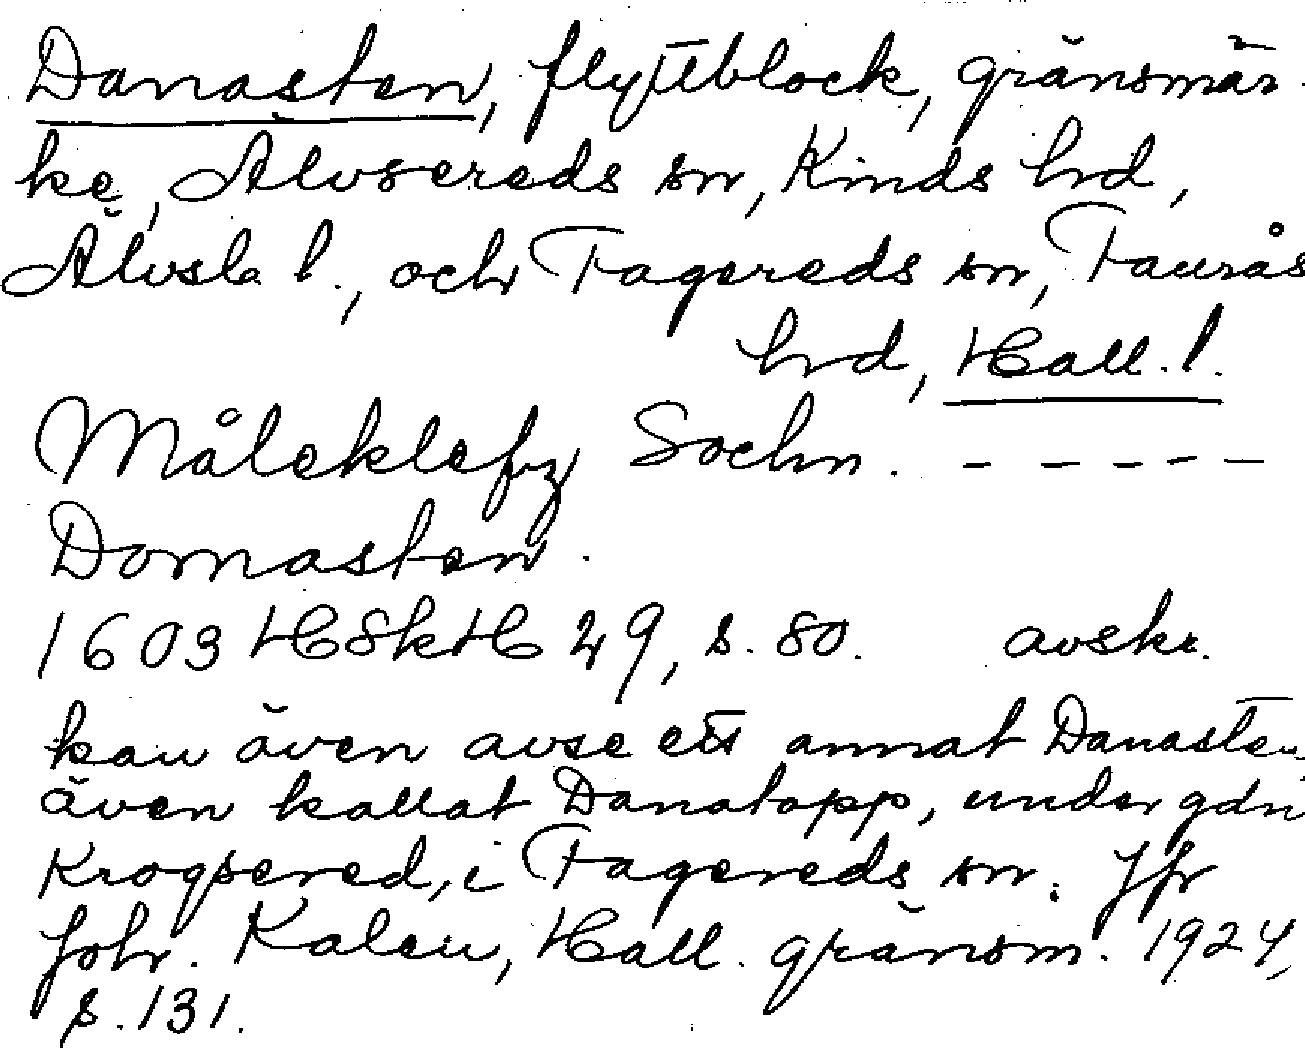 Danasten, flyttblock, gränsmär-
ke, Älvsereds sn, Kinds hd,
Älvsb. l., och Fagereds sn, Faurås
hd, Hall. l.
Målcklefz Sochn. - - - - -
Domasten.
1603 HSkH 29, s. 80. avskr.
kan även avse ett annat Danasten,
även kallat Danatopp, under gdn
Krogsered, i Fagereds sn. Jfr
Joh. Kalén, Hall. gränsm. 1924,
s. 131.